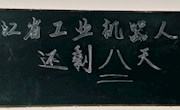 江省工业机器人
还剩八天